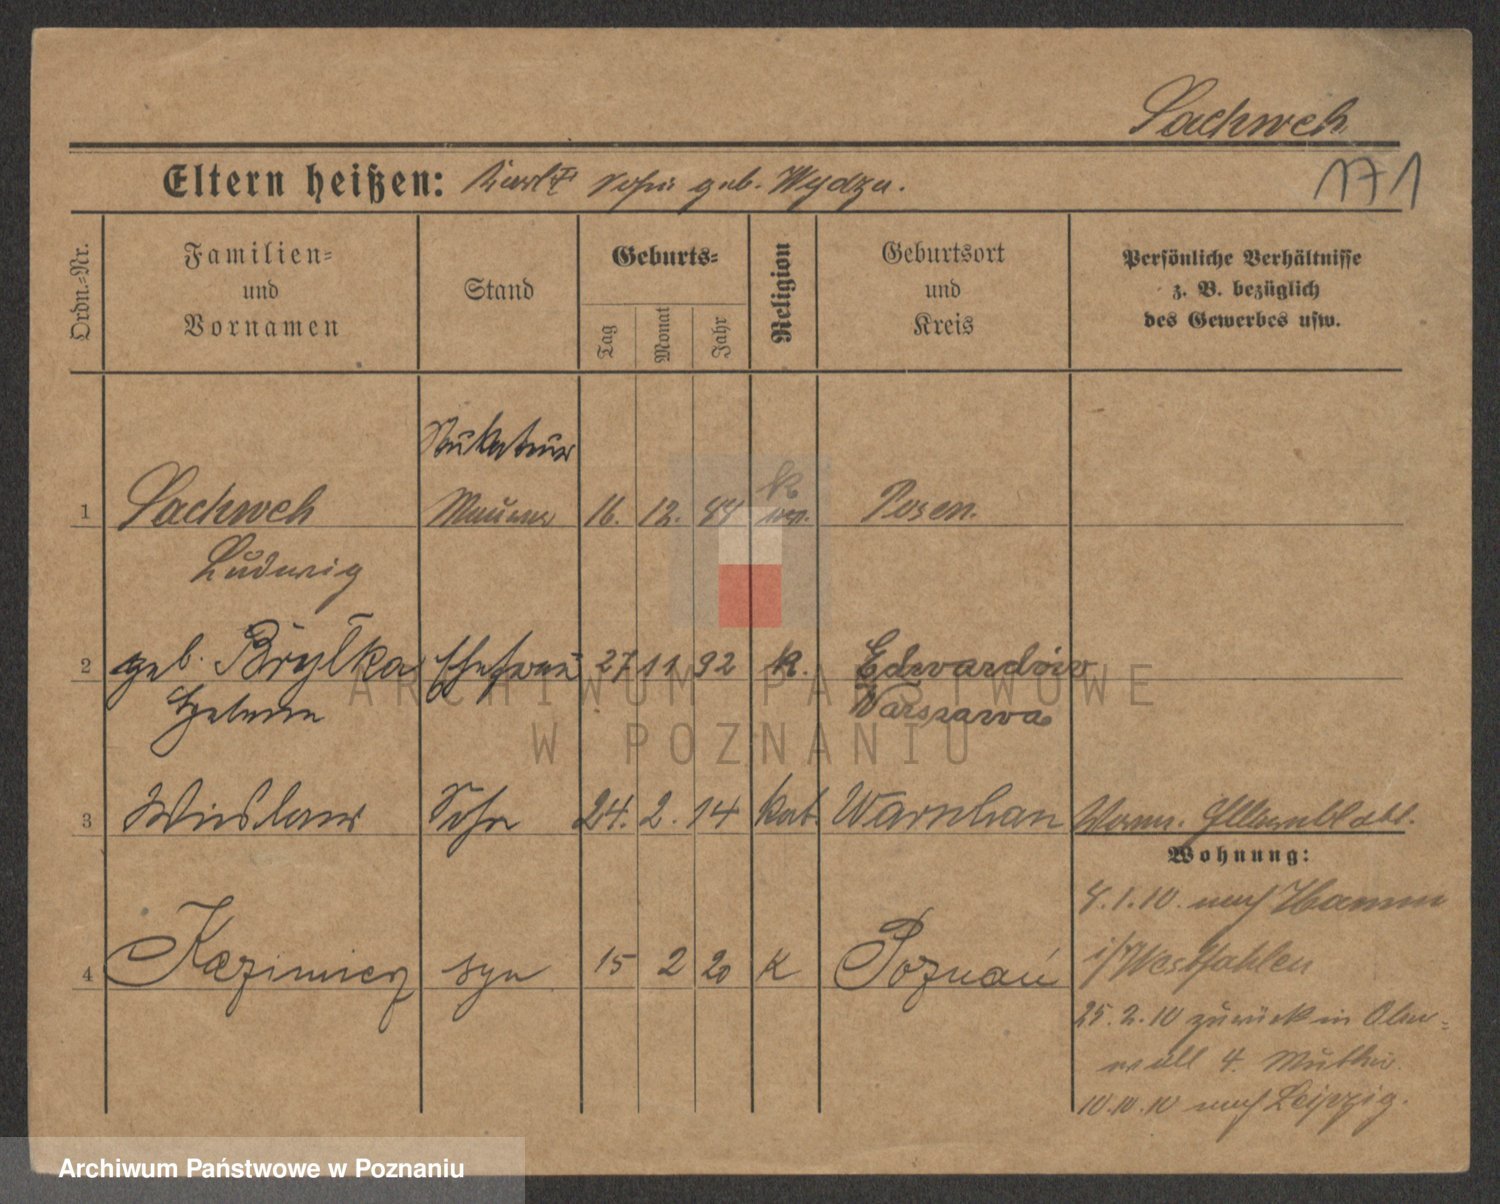 Sachweh
Eltern heißen: Karl † Sofie geb. Wydza.
171
Ordn.-Nr.
Familien-
und
Vornamen
Stand
Geburts-
Tag
Monat
Jahr
Religion
Geburtsort
und
Kreis
Persönliche Verhältnisse
z. B. bezüglich
des Gewerbes usw.
Stukateur
k
1 Sachweh Maurer 16. 12. 88 Posen.
Ludwig
2 geb. Bryłka Ehefrau 27 11 92 k. Edwardów
Warszawa
3 Wieslaus Sohn 24. 2. 14 kat. Warschau
Wohnung:
8.1.10. nach Hamm
4 Kazimierz syn 15 2 20 K Poznań
i/Westfahlen
25.2.10 zurück in Ober-
wall 4. Mutter.
10.10.10 nach Leipzig.
ARCHIWUM PAŃSTWOWE
W POZNANIU
Archiwum Państwowe w Poznaniu